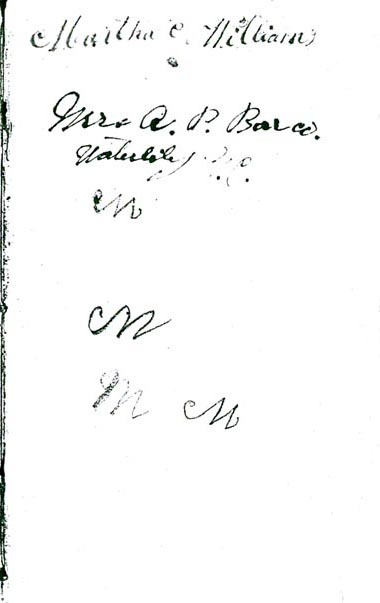 Martha C. Williams
Mrs A. P. Barco.
Waterlily N.C.
M
M
M M